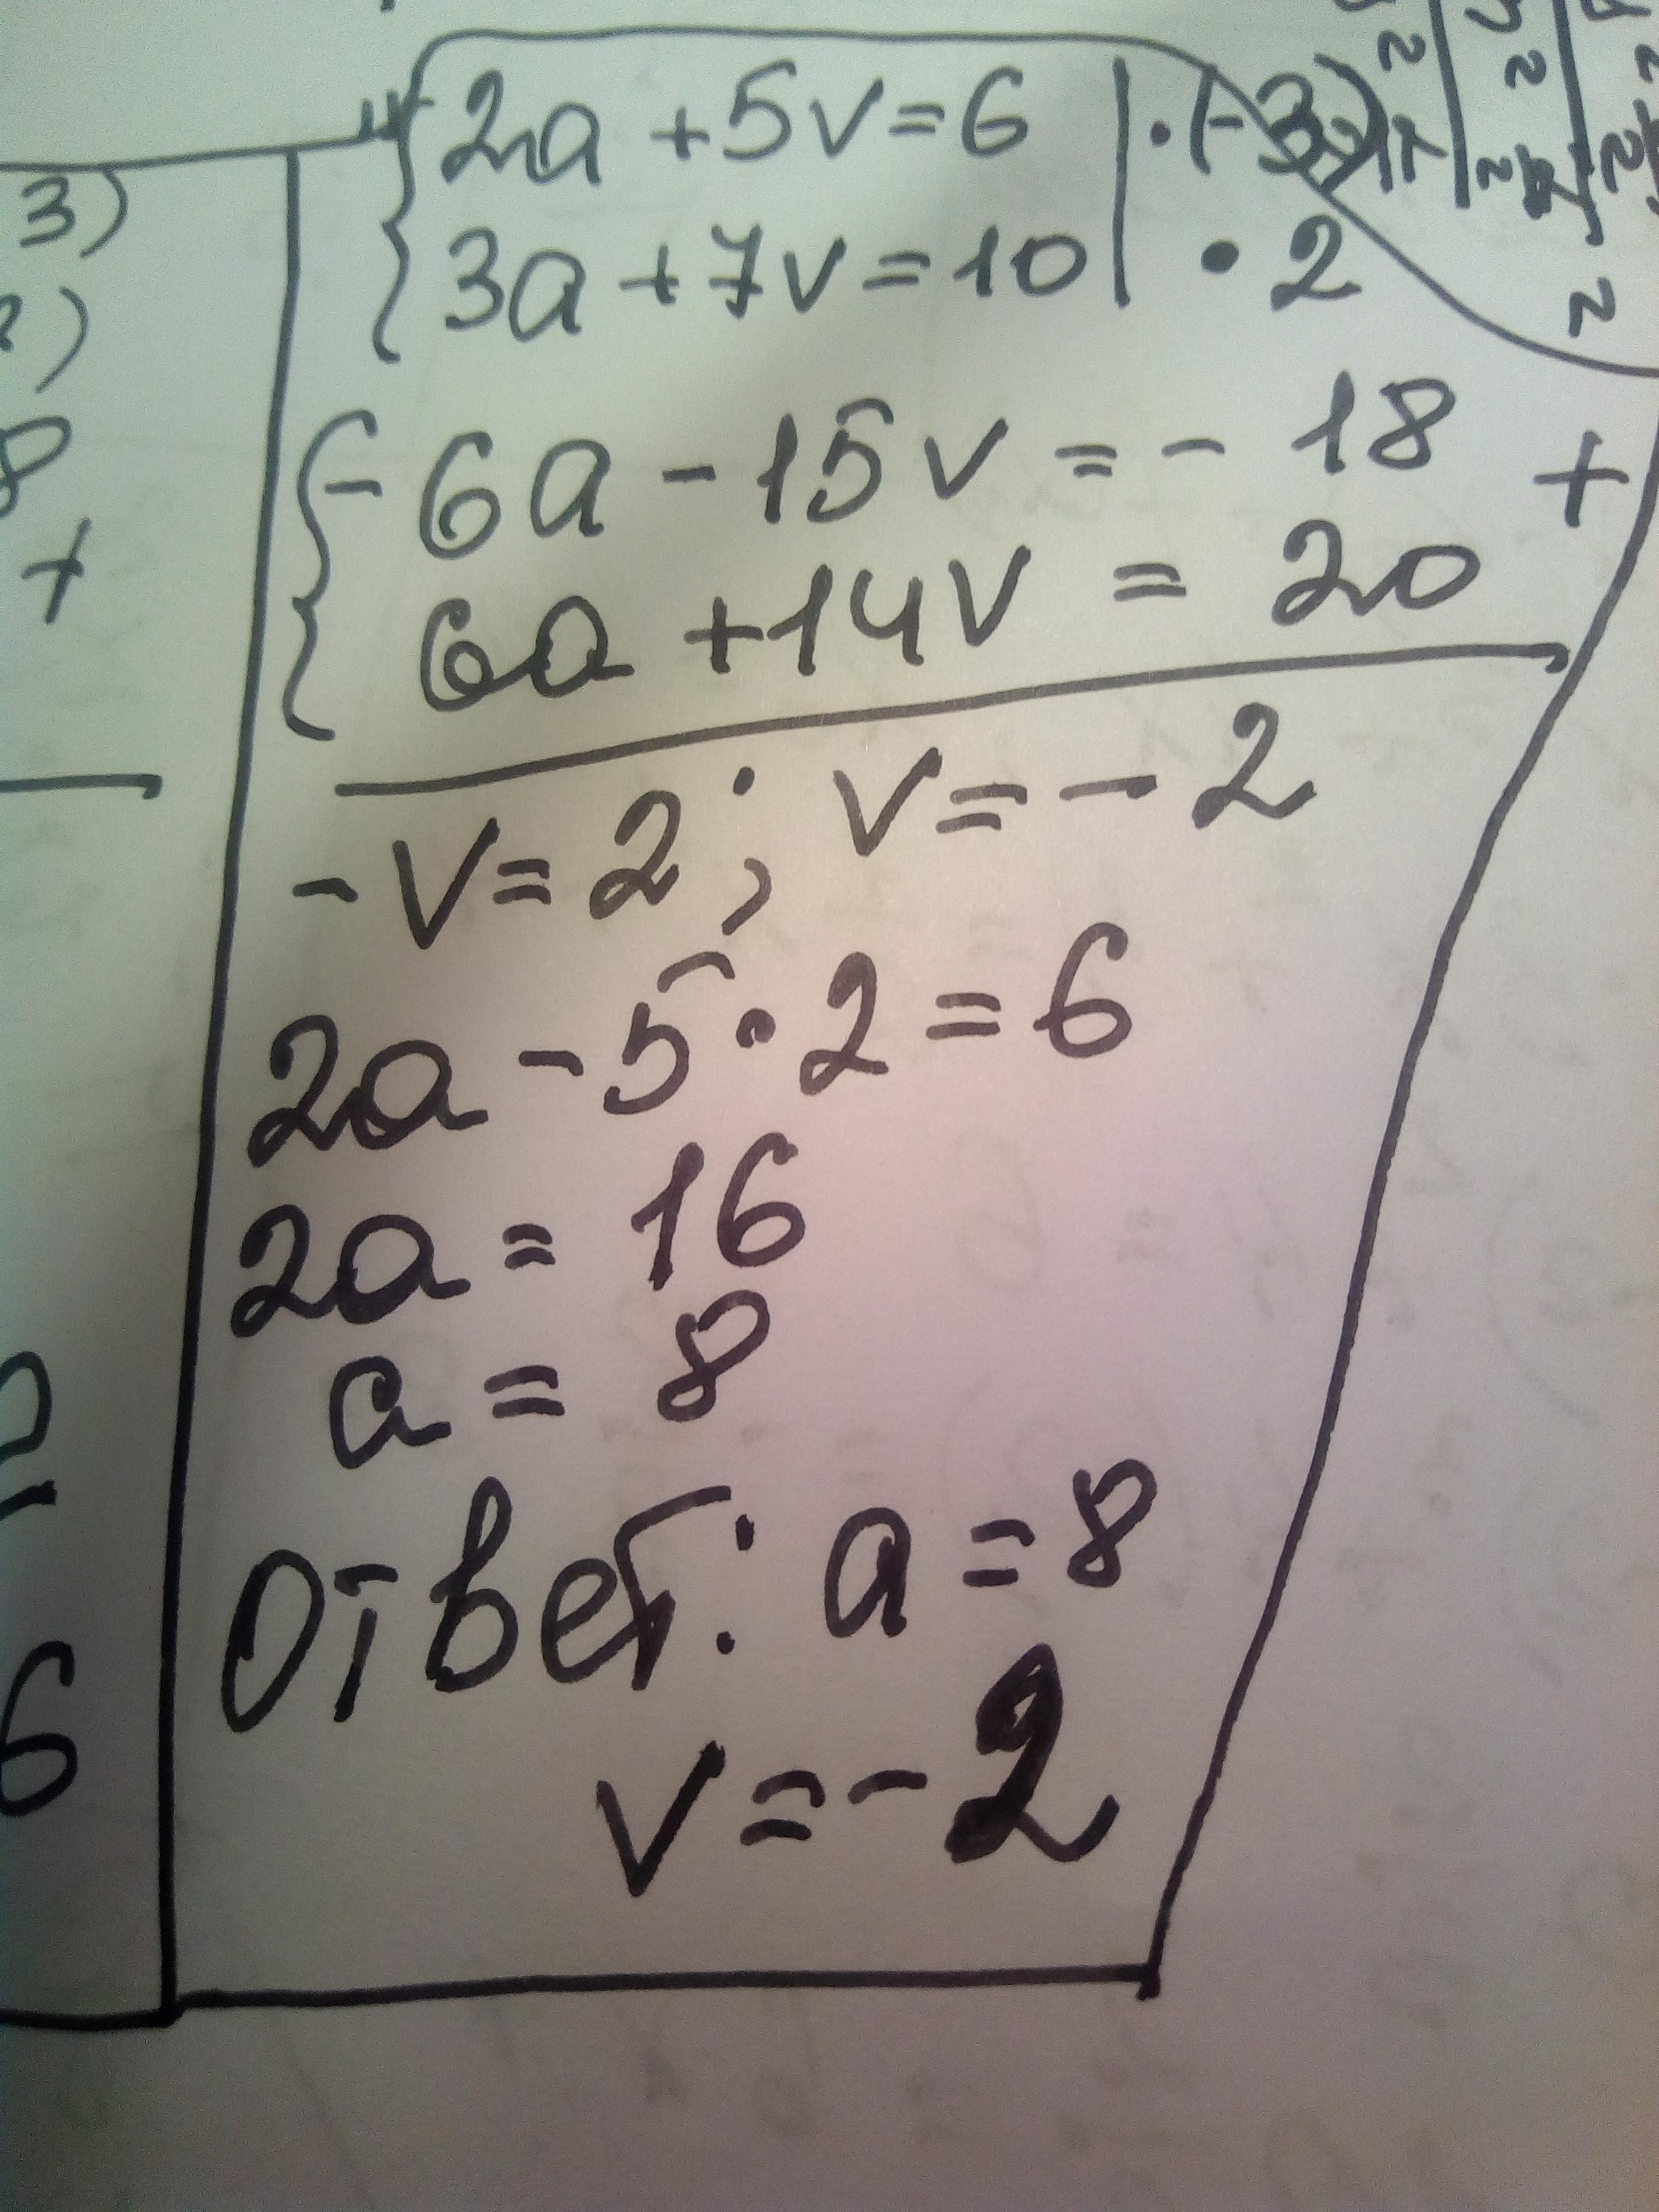 3)
2a + 5v = 6 | · (-3)
3a + 7v = 10 | · 2
8
+
{ -6a - 15v = - 18
+
6a + 14v = 20
-v = 2 ; v = - 2
2a - 5 · 2 = 6
2a = 16
a = 8
Ответ: a = 8
v = - 2
6